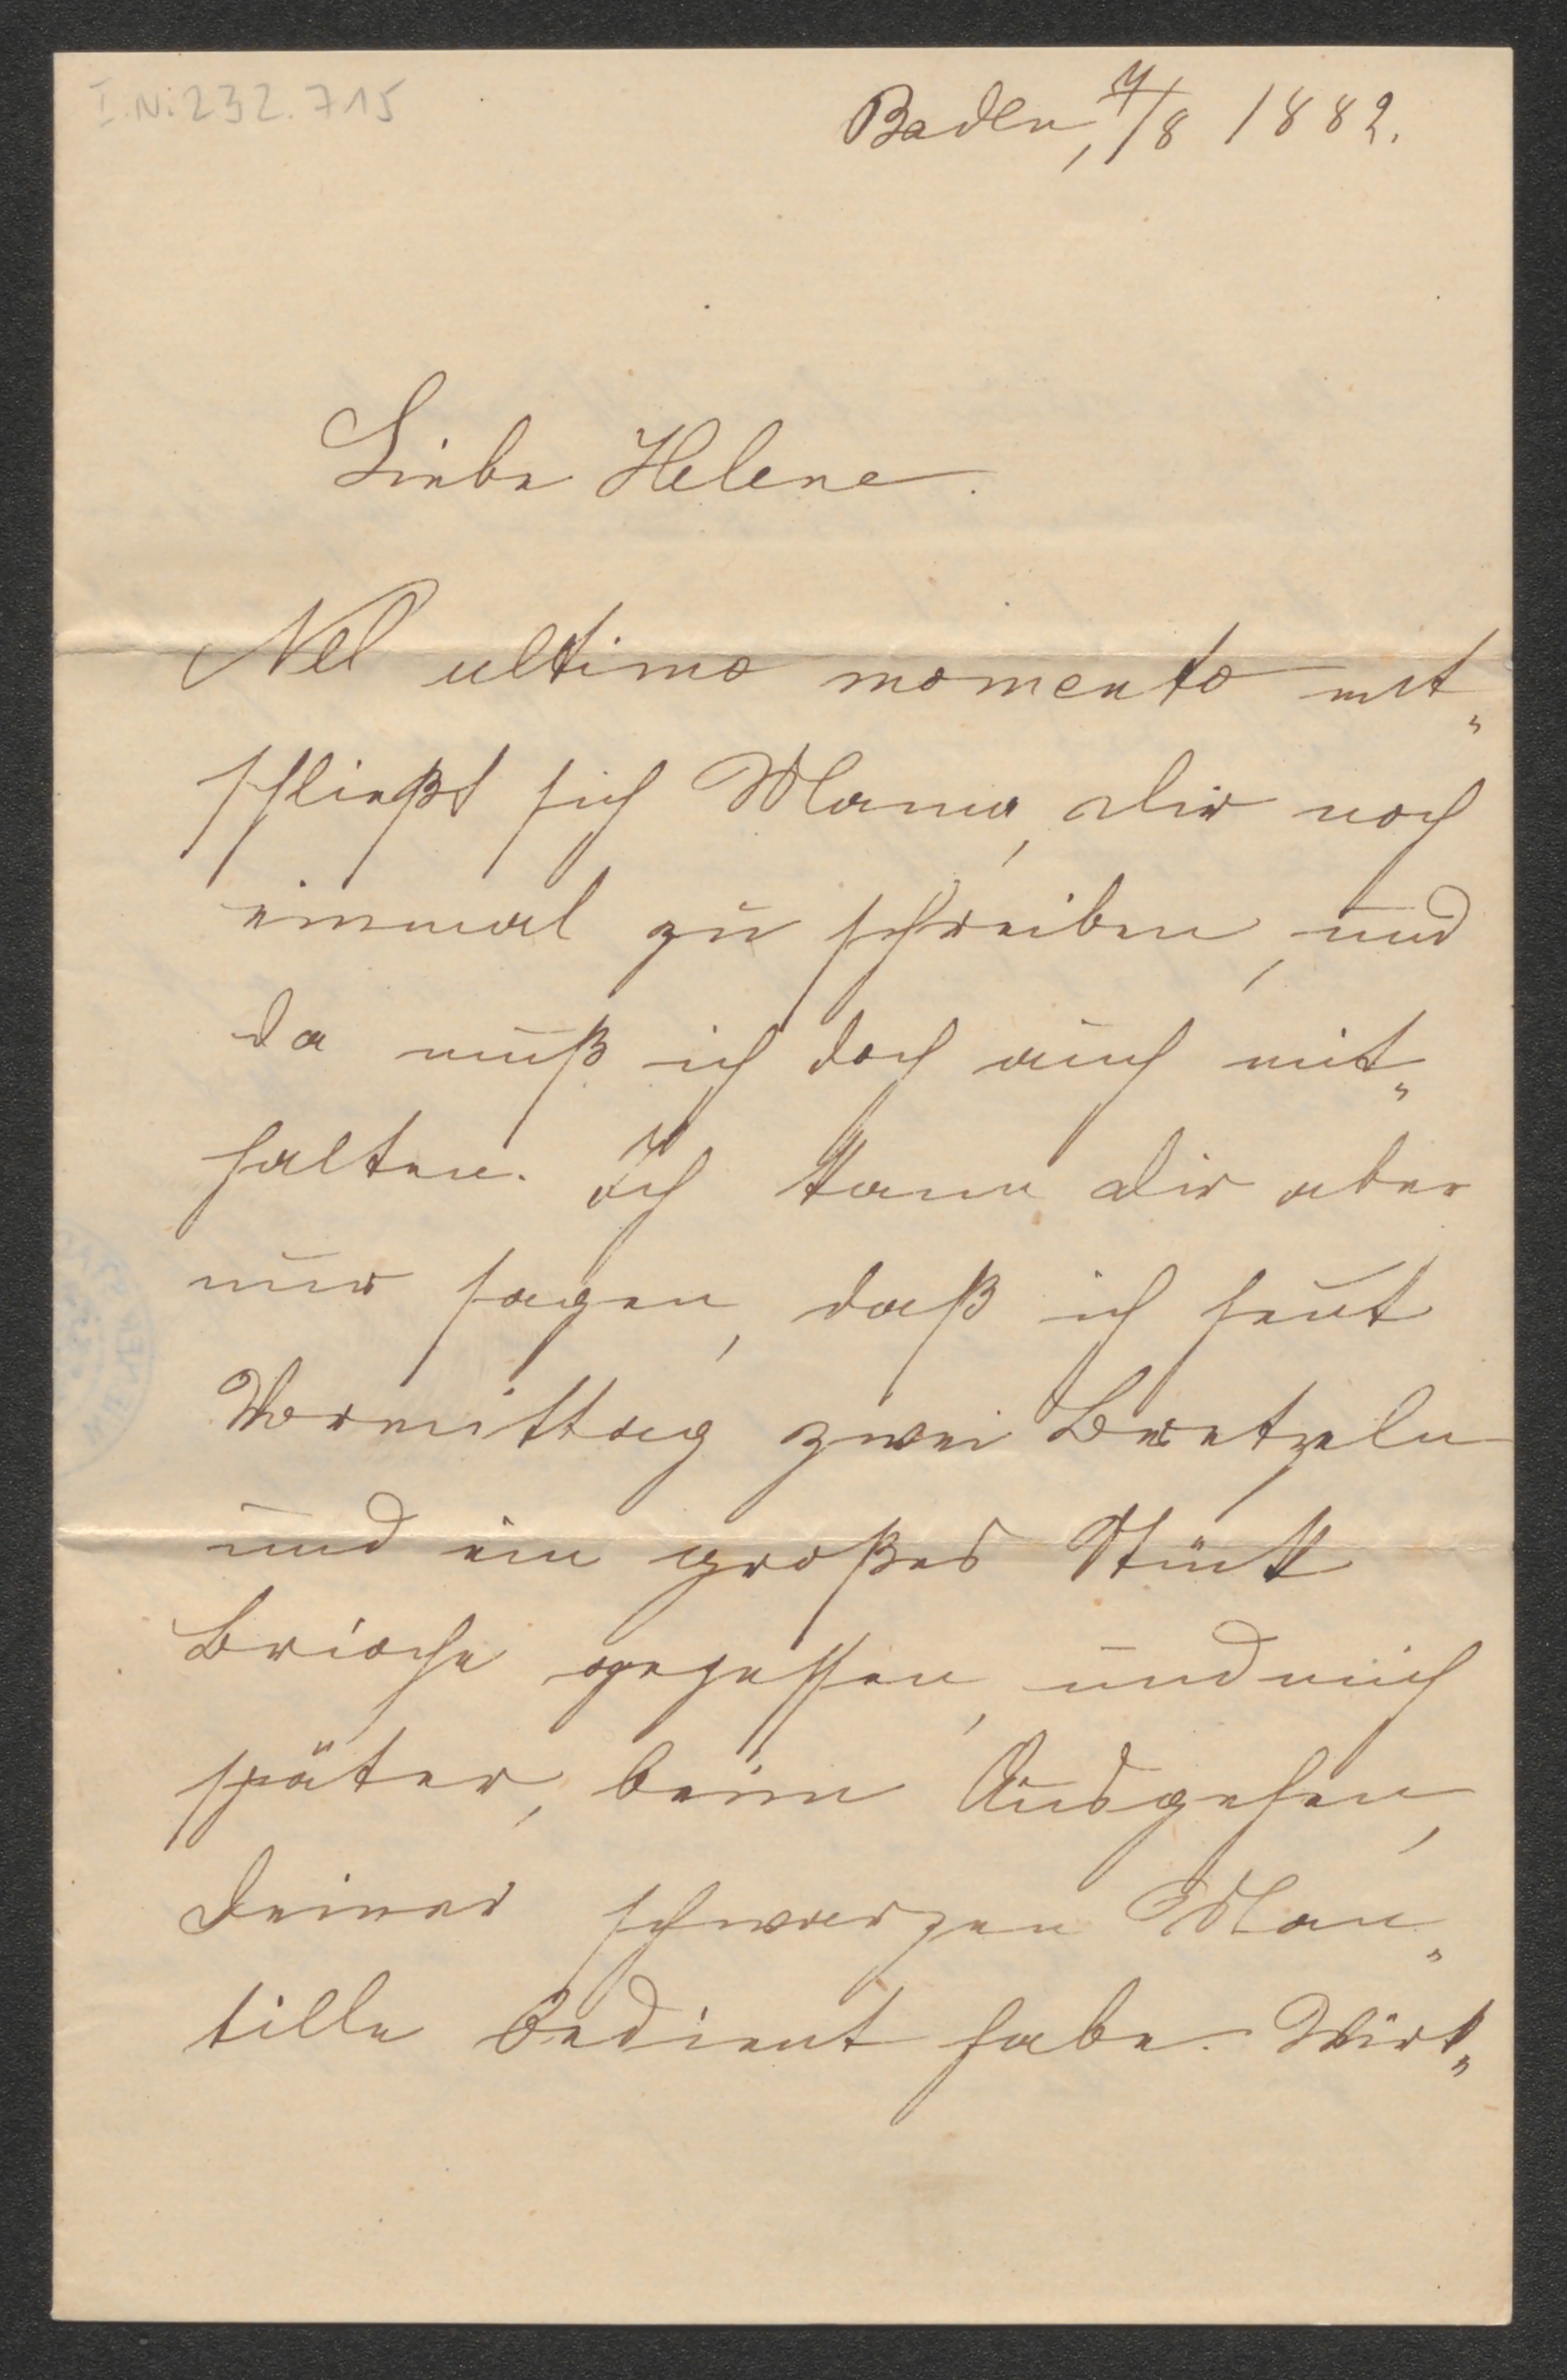 I.N. 232.715
Baden, 4/8 1882.
Liebe Helene.
Nel ultimo momento ent„
schließt sich Mama, dir noch
einmal zu schreiben, und
da muß ich doch auch mit„
halten. Ich kann dir aber
nur sagen, daß ich heut
Vormittag zwei Bretzeln
und ein großes Stück
Brioche gegessen, und mich
später, beim Ausgehen,
deiner schwarzen Man„
tille bedient habe. Wirk„